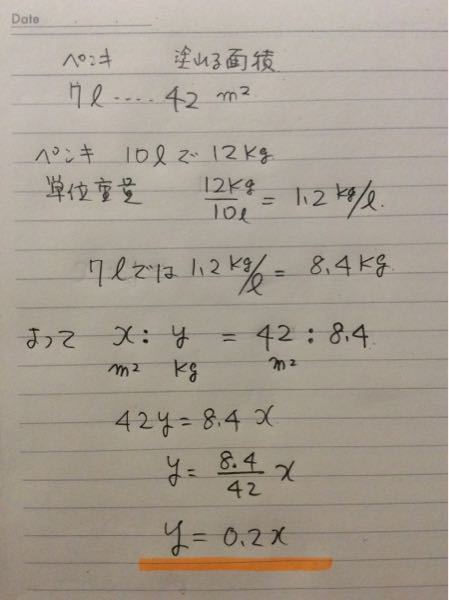 Date
ペンキ 塗れる面積
7ℓ ‥‥‥ 42 m²
ペンキ 10ℓで 12kg
単位重量 12kg/10ℓ = 1.2 kg/ℓ.
7ℓでは 1.2 kg/ℓ = 8.4 kg.
よって x : y = 42 : 8.4
m² kg m²
42y = 8.4 x
y = 8.4/42 x
y = 0.2x